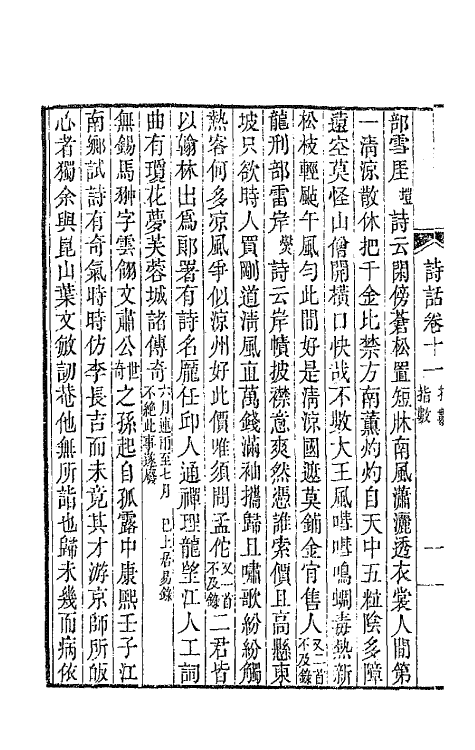 詩話卷十一 指數
一
部雪厓 塏 詩云閑傍蒼松置短牀南風瀟灑透衣裳人間第
一清涼散休把千金比禁方南薰灼灼自天中五粒陰多障
遠空莫怪山僧開橫口快哉不數大王風嘒嘒鳴蜩毒熱新
松枝輕颭午風勻此間好是清涼國遮莫鋪金肯售人 又二首不及錄
龍刑部雷岸 燮 詩云岸幘披襟意爽然憑誰索價且高懸東
坡只欲時人買剛道清風直萬錢滿袖攜歸且嘯歌紛紛觸
熱客何多凉風爭似凉州好此價唯須問孟佗 又一首不及錄 二君皆
以翰林出爲郎署有詩名龎任邱人通禪理龍望江人工詞
曲有瓊花夢芙蓉城諸傳奇 六月連雨至七月不絶此事遂廢 已上居易錄
無錫馬翀字雲翎文肅公 世奇 之孫起自孤露中康熙壬子江
南鄉試詩有奇氣時時仿李長吉而未竟其才游京師所皈
心者獨余與崑山葉文敏訒菴他無所詣也歸未幾而病依